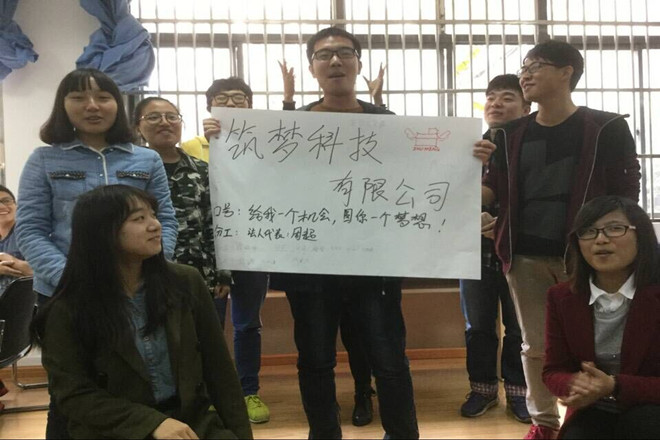 筑梦科技
有限公司
口号：给我一个机会，圆你一个梦想！
分工：法人代表：周超